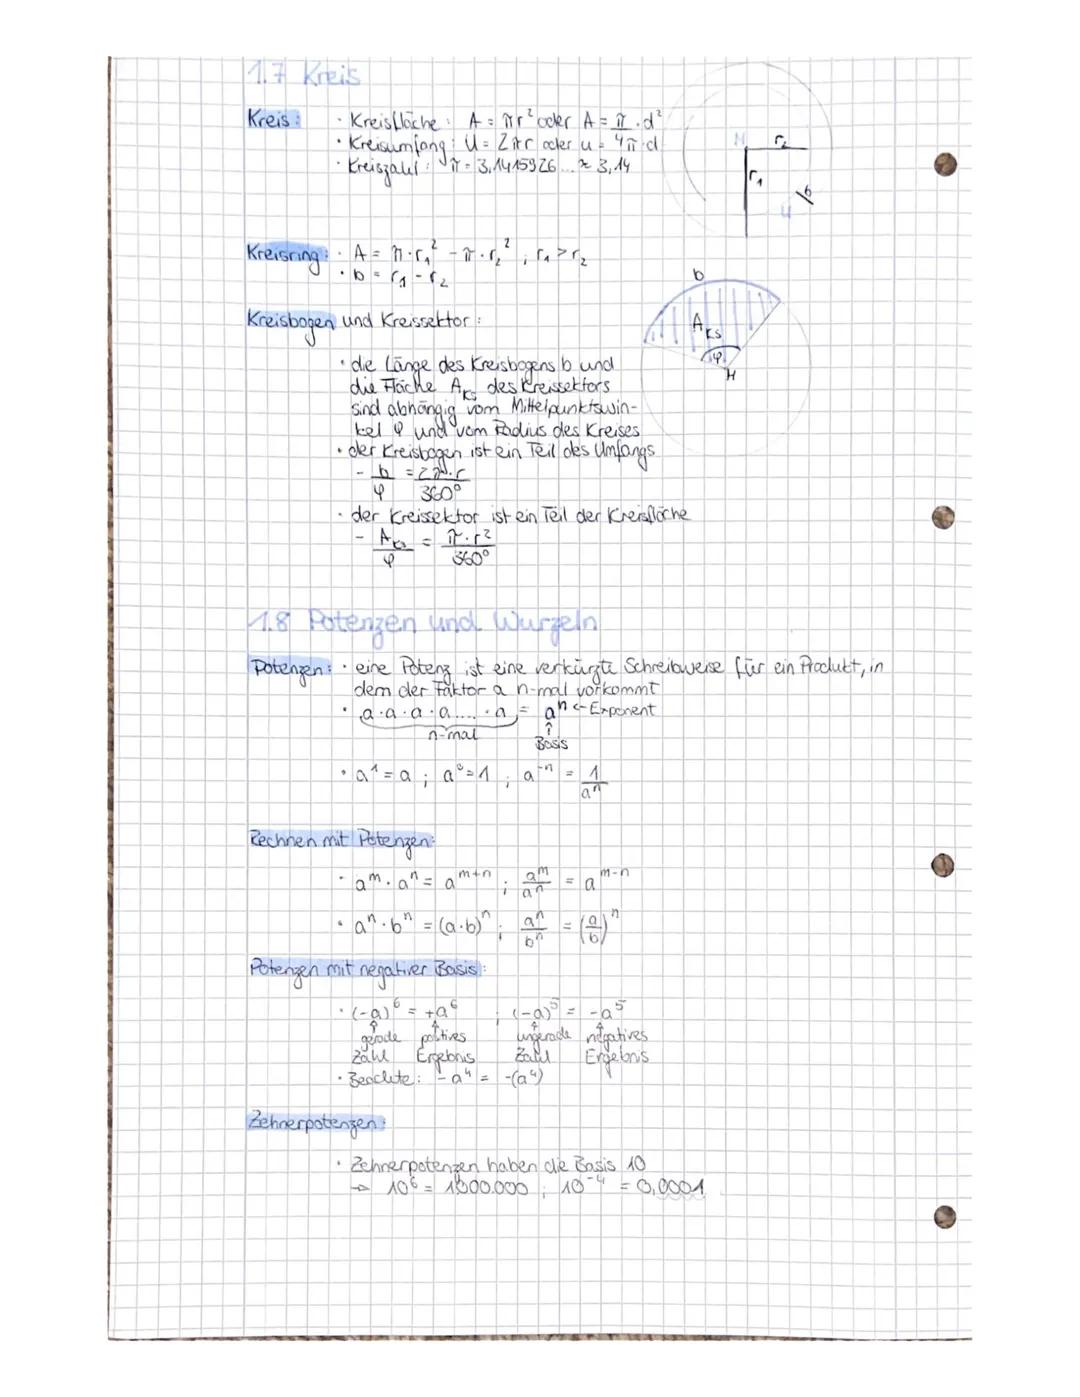 1.7 Kreis
Kreis: · Kreisfläche: A = πr² oder A = π/4 · d²
· Kreisumfang: U = 2πr oder u = π·d
· Kreiszahl: π = 3,1415926... ≈ 3,14
M r₂
r₁ b
U
Kreisring: · A = π·r₁² - π·r₂² ; r₁ > r₂
· b = r₁ - r₂
b
A_KS
φ
M
Kreisbogen und Kreissektor:
· die Länge des Kreisbogens b und
die Fläche A_KS des Kreissektors
sind abhängig vom Mittelpunktswin-
kel φ und vom Radius des Kreises
· der Kreisbogen ist ein Teil des Umfangs
- b/φ = 2π·r/360°
· der Kreissektor ist ein Teil der Kreisfläche
- A_KS/φ = π·r²/360°
1.8 Potenzen und Wurzeln
Potenzen: · eine Potenz ist eine verkürzte Schreibweise für ein Produkt, in
dem der Faktor a n-mal vorkommt
· a·a·a·a.... ·a = aⁿ ← Exponent
n-mal ↑
Basis
· a¹ = a ; a⁰ = 1 ; a⁻ⁿ = 1/aⁿ
Rechnen mit Potenzen:
· aᵐ · aⁿ = aᵐ⁺ⁿ ; aᵐ/aⁿ = aᵐ⁻ⁿ
· aⁿ · bⁿ = (a·b)ⁿ ; aⁿ/bⁿ = (a/b)ⁿ
Potenzen mit negativer Basis:
· (-a)⁶ = +a⁶ ; (-a)⁵ = -a⁵
↑ ↑ ↑ ↑
gerade positives ungerade negatives
Zahl Ergebnis Zahl Ergebnis
· Beachte: -a⁴ = -(a⁴)
Zehnerpotenzen:
· Zehnerpotenzen haben die Basis 10
→ 10⁶ = 1000.000 ; 10⁻⁴ = 0,0001